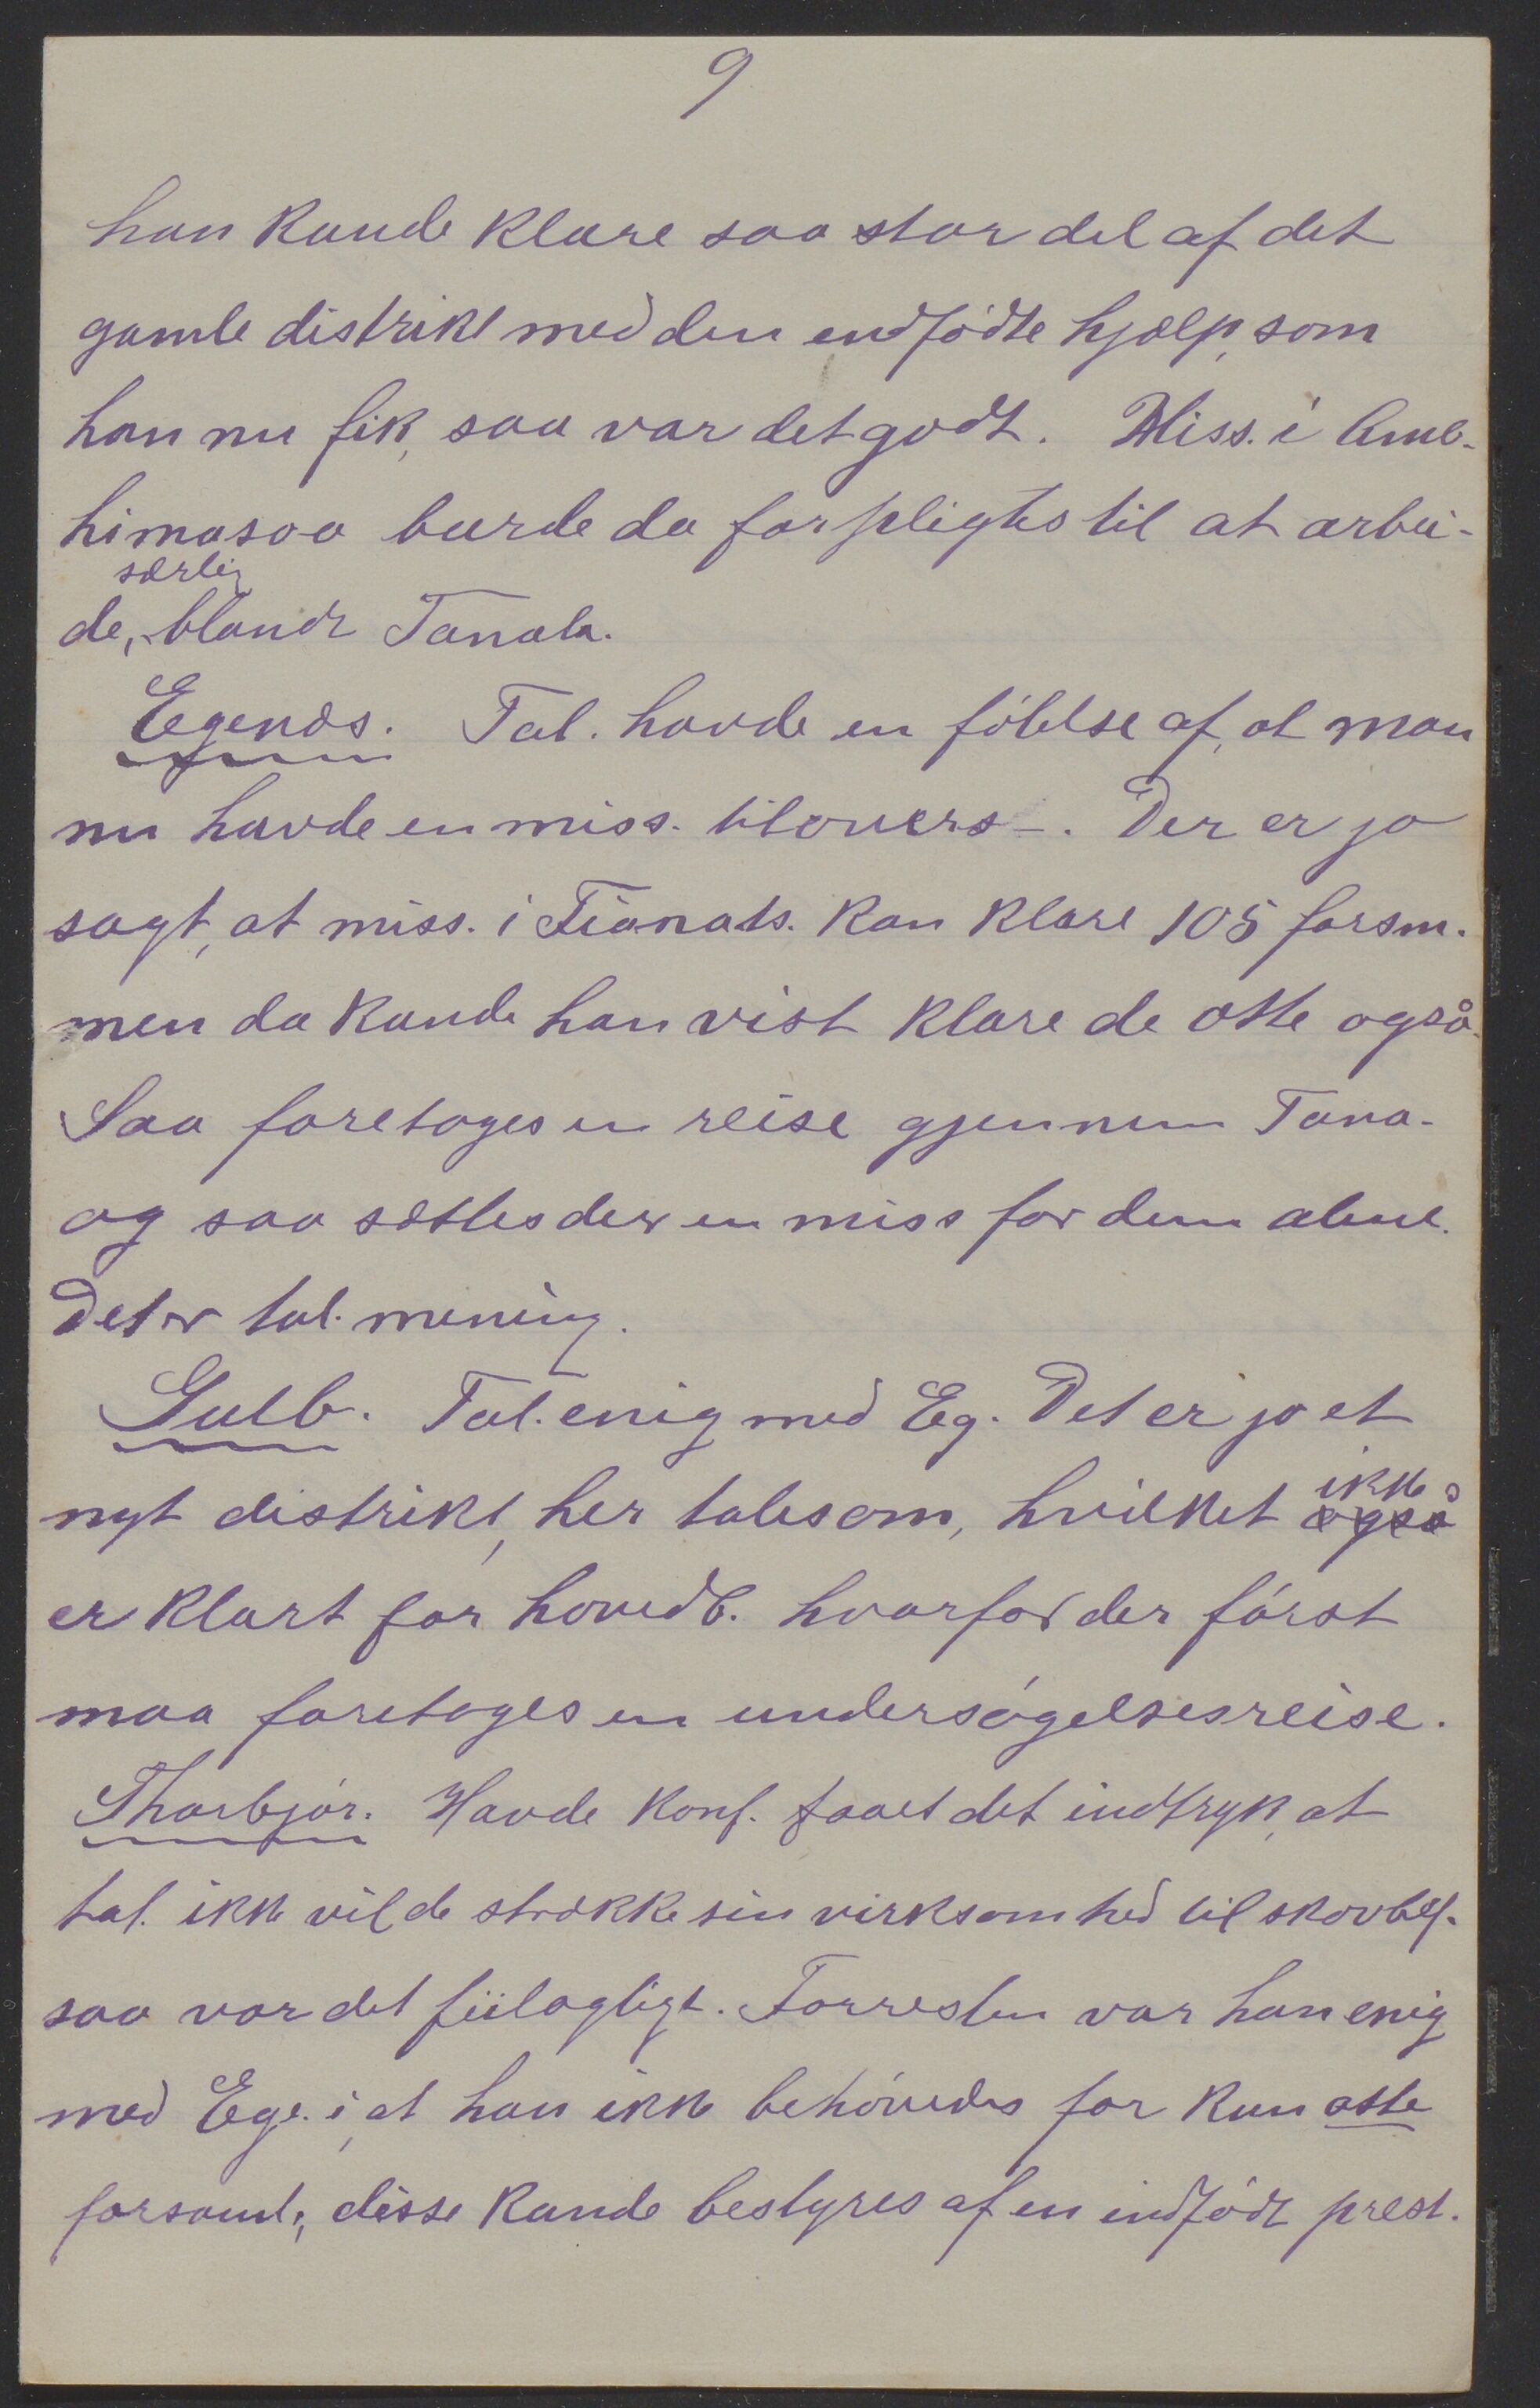 9
han kunde klare saa stor del af det
gamle distrikt med den endfødte hjælp, som
han nu fik, saa var det godt. Miss. i Amb-
himasoa burde da forpligtes til at arbei-
særlig
de, blandt Tanala.
Egenæs. Tal. havde en følelse af, at man
nu havde en miss. tilovers-. Der er jo
sagt, at miss. i Fianats. kan klare 105 forsm.
men da kunde han vist klare de otte også.
Saa foretages en reise gjennem Tana-
og saa sættes der en miss for dem alene.
Det er tal. mening.
Gulb. Tal. enig med Eg. Det er jo et
nyt distrikt, her tales om, hvilket ikke også
er klart for hovedb. hvorfor der først
maa foretages en undersøgelsesreise.
Thorbjør. Havde konf. faaet det indtryk, at
tal. ikke vilde strække sin virksomhed til skovbef.
saa var det feilagtigt. Forresten var han enig
med Ege. i, at han ikke behøvedes for kun otte
forsaml., disse kunde bestyres af en indfødt prest.